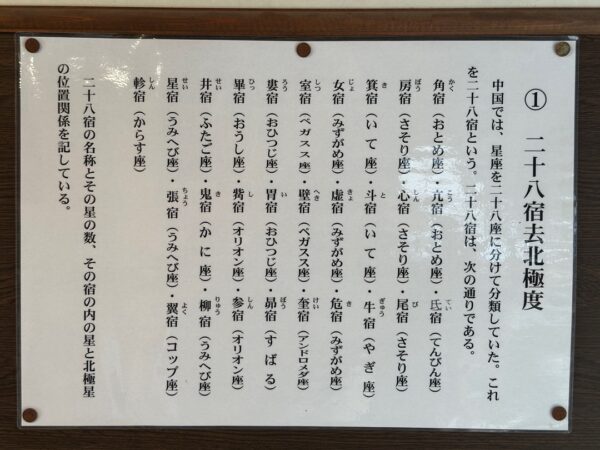 ① 二十八宿去北極度
中国では、星座を二十八座に分けて分類していた。これ
を二十八宿という。二十八宿は、次の通りである。
角宿（おとめ座）・亢宿（おとめ座）・氐宿（てんびん座）
房宿（さそり座）・心宿（さそり座）・尾宿（さそり座）
箕宿（いて座）・斗宿（いて座）・牛宿（やぎ座）
女宿（みずがめ座）・虚宿（みずがめ座）・危宿（みずがめ座）
室宿（ペガスス座）・壁宿（ペガスス座）・奎宿（アンドロメダ座）
婁宿（おひつじ座）・胃宿（おひつじ座）・昴宿（すばる）
畢宿（おうし座）・觜宿（オリオン座）・参宿（オリオン座）
井宿（ふたご座）・鬼宿（かに座）・柳宿（うみへび座）
星宿（うみへび座）・張宿（うみへび座）・翼宿（コップ座）
軫宿（からす座）
二十八宿の名称とその星の数、その宿の内の星と北極星
の位置関係を記している。